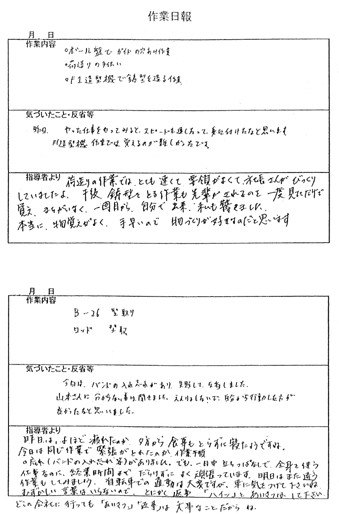 作業日報
月 日
作業内容
○ボール盤で ガイドの穴あけ作業
○荷造りの手伝い
○F1造型機で鋳型を造る作業
気づいたこと・反省等
昨日、やった仕事をやってみると、スピードも速くなって、身に付けたなと思います
作業では、覚えるのが難しかったです。
指導者より
荷造りの作業では、とても速くて要領がよくて、さんがびっくり
していましたよ。午後、鋳型をとる作業も先輩がされるのを一度見ただけで
覚え、一回目から、自分で出来、私も驚きました。
本当に、物覚えがよく、手早いので 物づくりが好きなのだと思います
月 日
作業内容
B-26 型取り
気づいたこと・反省等
今日は、バンドの入れ忘れがあり、失敗して
山本さんに
良かったなと思いました。
指導者より
昨日は、よほど疲れたか、夕方から食事もとらずに寝たようですね。
今日は同じ作業で緊張がとれたのか、作業手順
の忘れ(バンドの入れ忘れ等)がありました。でも、一日中立ちっぱなしで、全身を使う
仕事なのに、終業時間までだらけずによく頑張っています。明日はまた違う
作業もしてみましょう。自転車での通勤は大変ですが、車に気をつけて下さいね
むずかしい言葉はいらないので、とにかく返事「ハイッ」と あいさつは、して下さい
どこの会社に行っても"あいさつ""返事"は大事なことだからね。